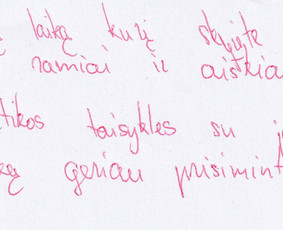 laiką kurį skyrėte
ramiai ir aiškia
tikos taisykles su
geriau prisimint